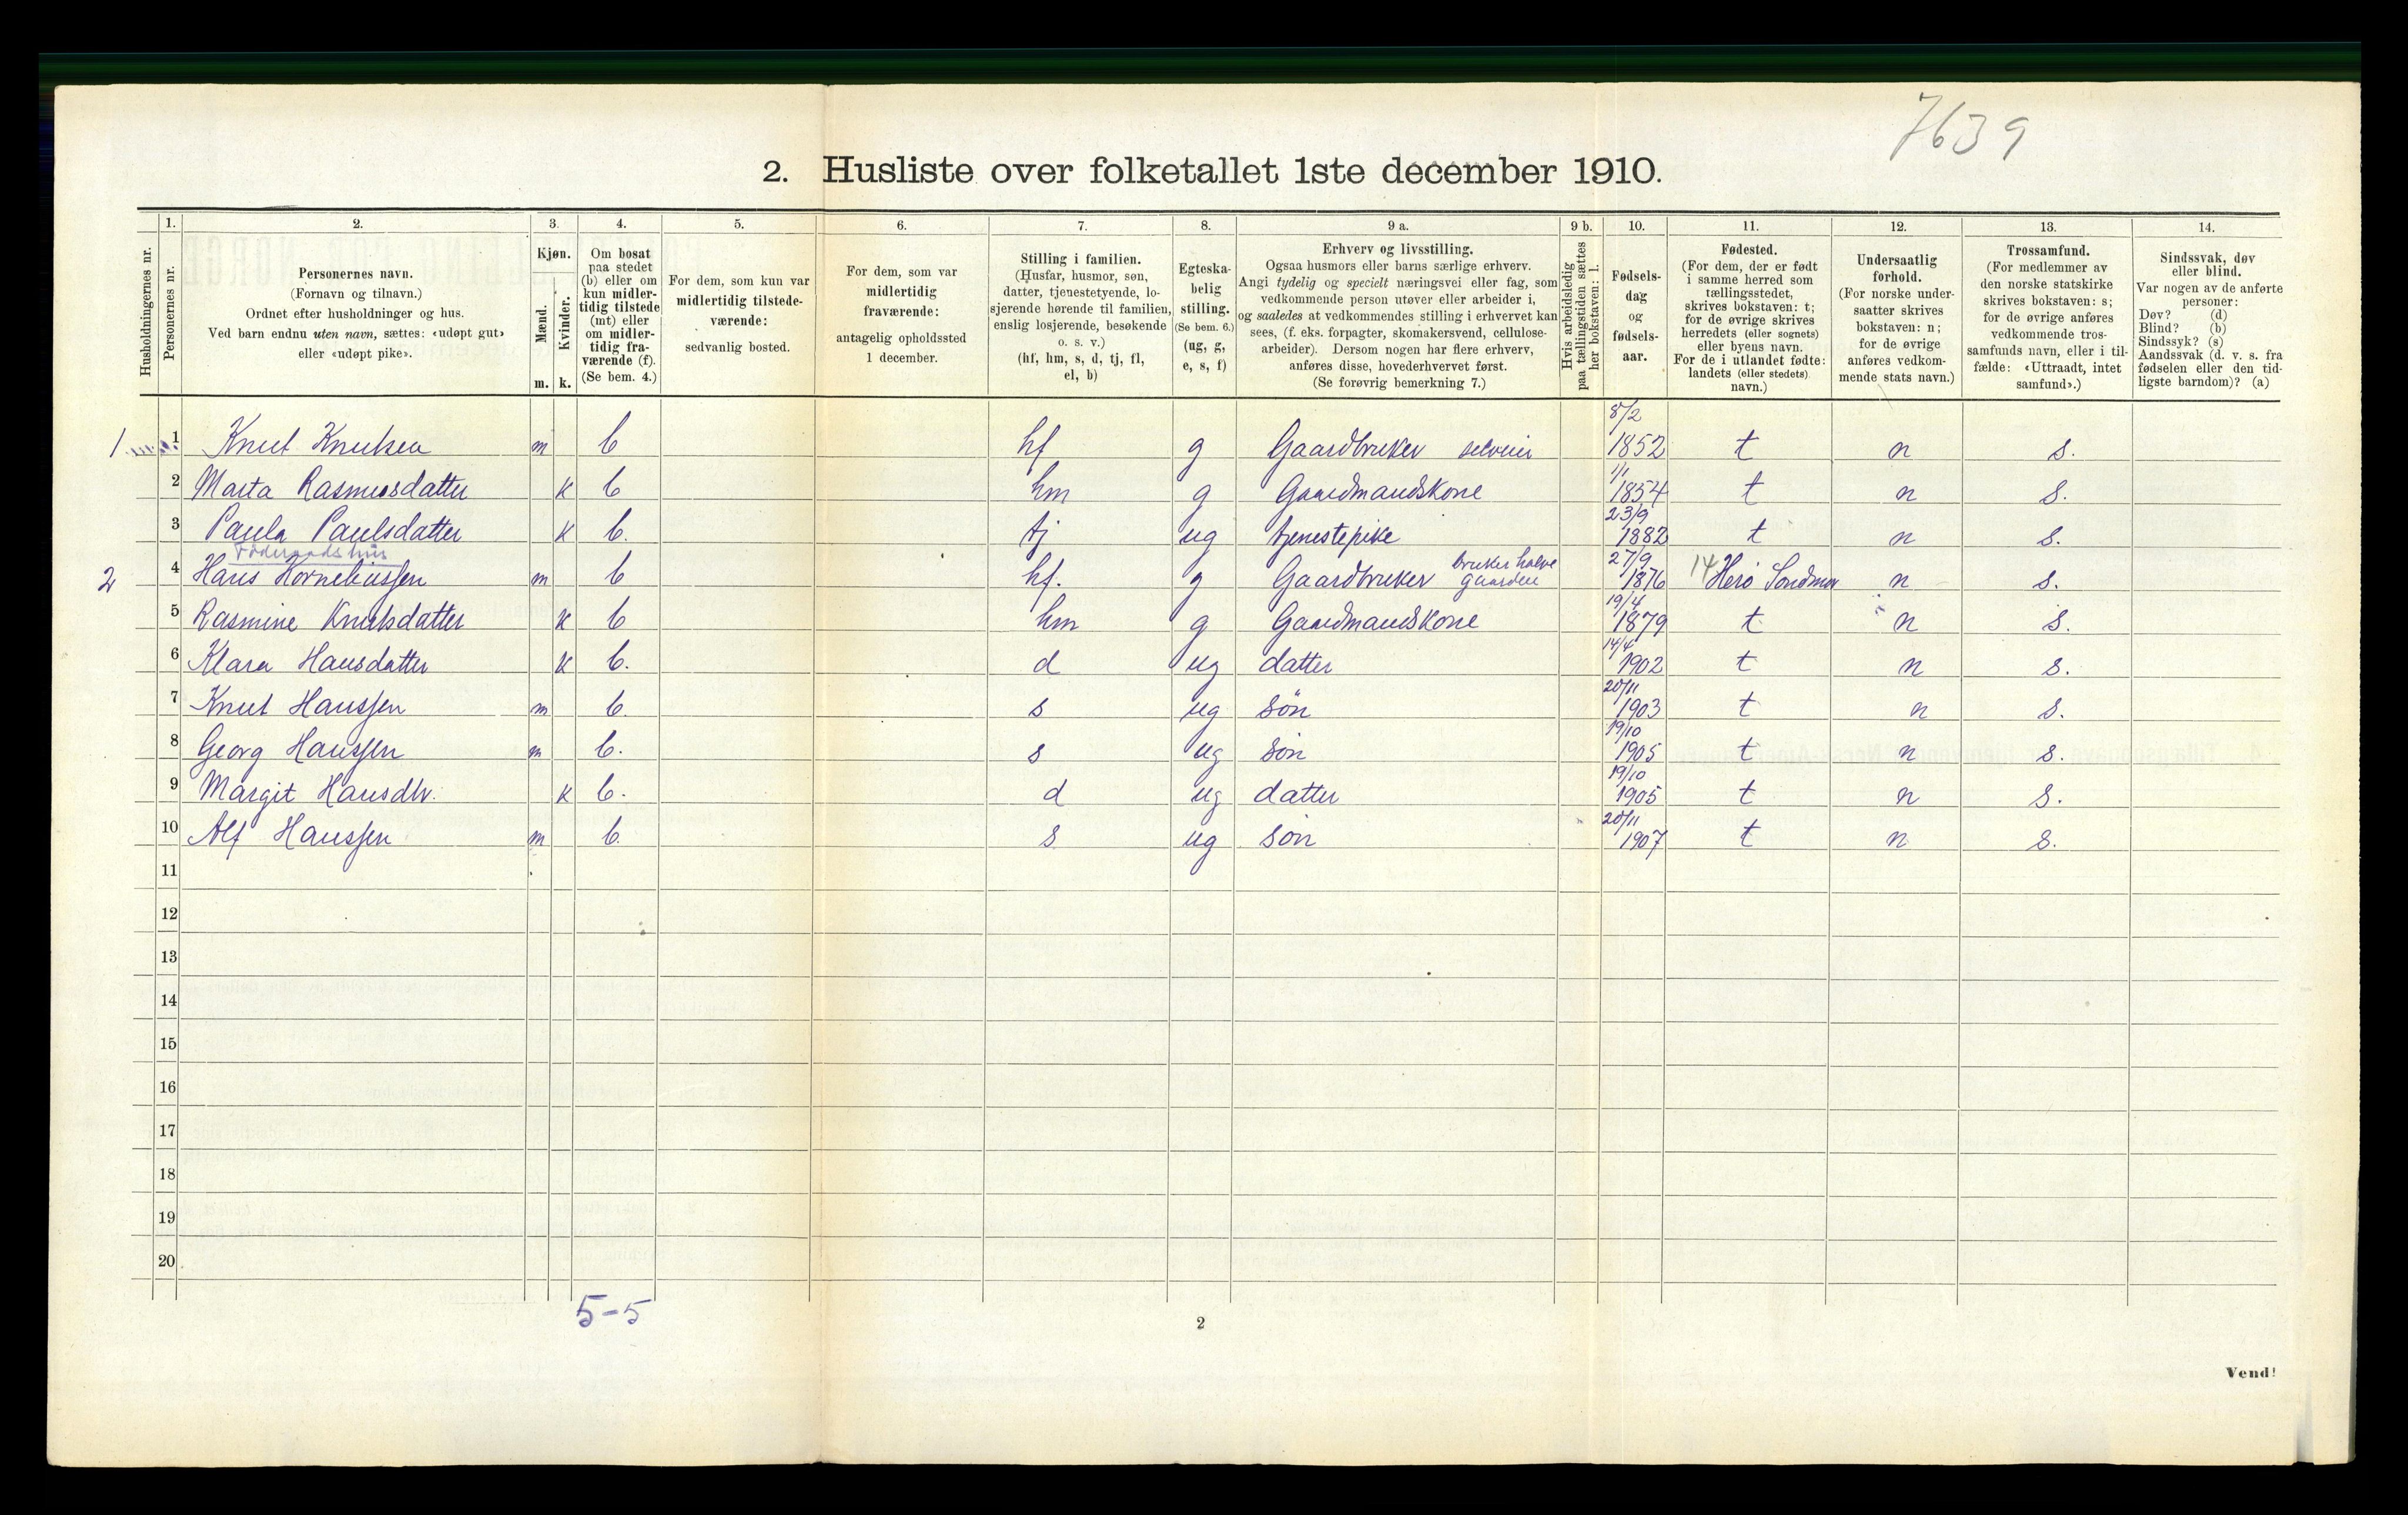 7639
2. Husliste over folketallet 1ste december 1910.
1. 2. 3. 4. 5. 6. 7. 8. 9 a. 9 b. 10. 11. 12. 13. 14.
Husholdningernes nr.
Personernes nr.
Personernes navn.
(Fornavn og tilnavn.)
Ordnet efter husholdninger og hus.
Ved barn endnu uten navn, sættes: «udøpt gut»
eller «udøpt pike».
Kjøn.
Mænd.
Kvinder.
m. k.
Om bosat
paa stedet
(b) eller om
kun midler-
tidig tilstede
(mt) eller
om midler-
tidig fra-
værende (f).
(Se bem. 4.)
For dem, som kun var
midlertidig tilstede-
værende:
sedvanlig bosted.
For dem, som var
midlertidig
fraværende:
antagelig opholdssted
1 december.
Stilling i familien.
(Husfar, husmor, søn,
datter, tjenestetyende, lo-
sjerende hørende til familien,
enslig losjerende, besøkende
o. s. v.)
(hf, hm, s, d, tj, fl,
el, b)
Egteska-
belig
stilling.
(Se bem. 6.)
(ug, g,
e, s, f)
Erhverv og livsstilling.
Ogsaa husmors eller barns særlige erhverv.
Angi tydelig og specielt næringsvei eller fag, som
vedkommende person utøver eller arbeider i,
og saaledes at vedkommendes stilling i erhvervet kan
sees, (f. eks. forpagter, skomakersvend, cellulose-
arbeider). Dersom nogen har flere erhverv,
anføres disse, hovederhvervet først.
(Se forøvrig bemerkning 7.)
Hvis arbeidsledig
paa tællingstiden sættes
her bokstaven: l.
Fødsels-
dag
og
fødsels-
aar.
Fødested.
(For dem, der er født
i samme herred som
tællingsstedet,
skrives bokstaven: t;
for de øvrige skrives
herredets (eller sognets)
eller byens navn.
For de i utlandet fødte:
landets (eller stedets)
navn.)
Undersaatlig
forhold.
(For norske under-
saatter skrives
bokstaven: n;
for de øvrige
anføres vedkom-
mende stats navn.)
Trossamfund.
(For medlemmer av
den norske statskirke
skrives bokstaven: s;
for de øvrige anføres
vedkommende tros-
samfunds navn, eller i til-
fælde: «Uttraadt, intet
samfund».)
Sindssvak, døv
eller blind.
Var nogen av de anførte
personer:
Døv? (d)
Blind? (b)
Sindssyk? (s)
Aandssvak (d. v. s. fra
fødselen eller den tid-
ligste barndom)? (a)
1 1 Knut Knutsen m b hf g Gaardbruker selveier 8/2 1852 t n s.
2 Marta Rasmusdatter k b hm g Gaardmandskone 1/1 1854 t n s.
3 Paula Paulsdatter k b. tj ug tjenestepike 23/9 1882 t n s.
Föderaadshus
2 4 Hans Korneliussen m b hf. g Gaardbruker bruker halve gaarden 27/9 1876 14 Herö Söndmör n s.
5 Rasmine Knutsdatter k b hm g Gaardmandskone 19/4 1879 t n s.
6 Klara Hansdatter k b. d ug datter 14/4 1902 t n s.
7 Knut Hanssen m b. s ug søn 20/11 1903 t n s.
8 Georg Hanssen m b. s ug søn 19/10 1905 t n s.
9 Margit Hansdtr. k b. d ug datter 19/10 1905 t n s.
10 Alf Hanssen m b. s ug søn 20/11 1907 t n s.
11
12
13
14
15
16
17
18
19
20
5-5
2
Vend!